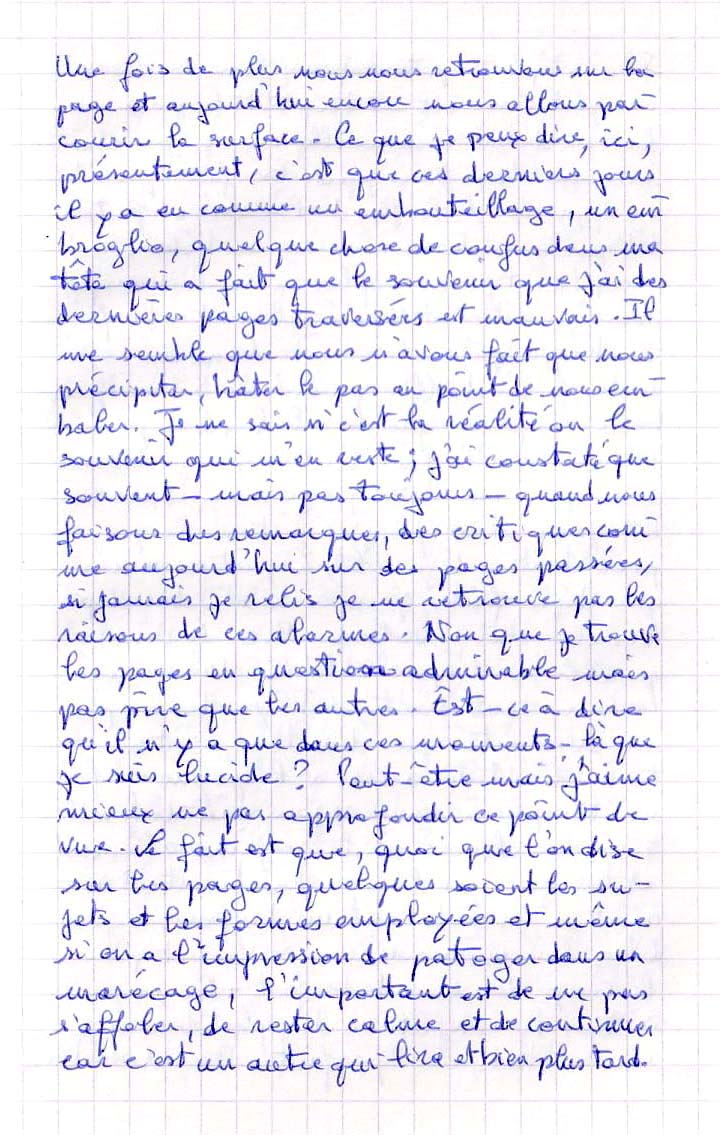 Une fois de plus nous nous retrouvons sur la
page et aujourd'hui encore nous allons par-
courir la surface. Ce que je peux dire, ici,
présentement, c'est que ces derniers jours
il y a eu comme un embouteillage, un em-
broglio, quelque chose de confus dans ma
tête qui a fait que le souvenir que j'ai des
dernières pages traversées est mauvais. Il
me semble que nous n'avons fait que nous
précipiter, hâter le pas au point de nous em-
baler. Je ne sais si c'est la réalité ou le
souvenir qui m'en reste ; j'ai constaté que
souvent - mais pas toujours - quand nous
faisons des remarques, des critiques com-
me aujourd'hui sur des pages passées,
si jamais je relis je ne retrouve pas les
raisons de ces alarmes. Non que je trouve
les pages en question admirable mais
pas pire que les autres. Est-ce à dire
qu'il n'y a que dans ces moments-là que
je suis lucide ? Peut-être mais j'aime
mieux ne pas approfondir ce point de
vue. Le fait est que, quoi que l'on dise
sur les pages, quelques soient les su-
jets et les formes employées et même
si on a l'impression de patoger dans un
marécage, l'important est de ne pas
s'affoler, de rester calme et de continuer
car c'est un autre qui lira et bien plus tard.